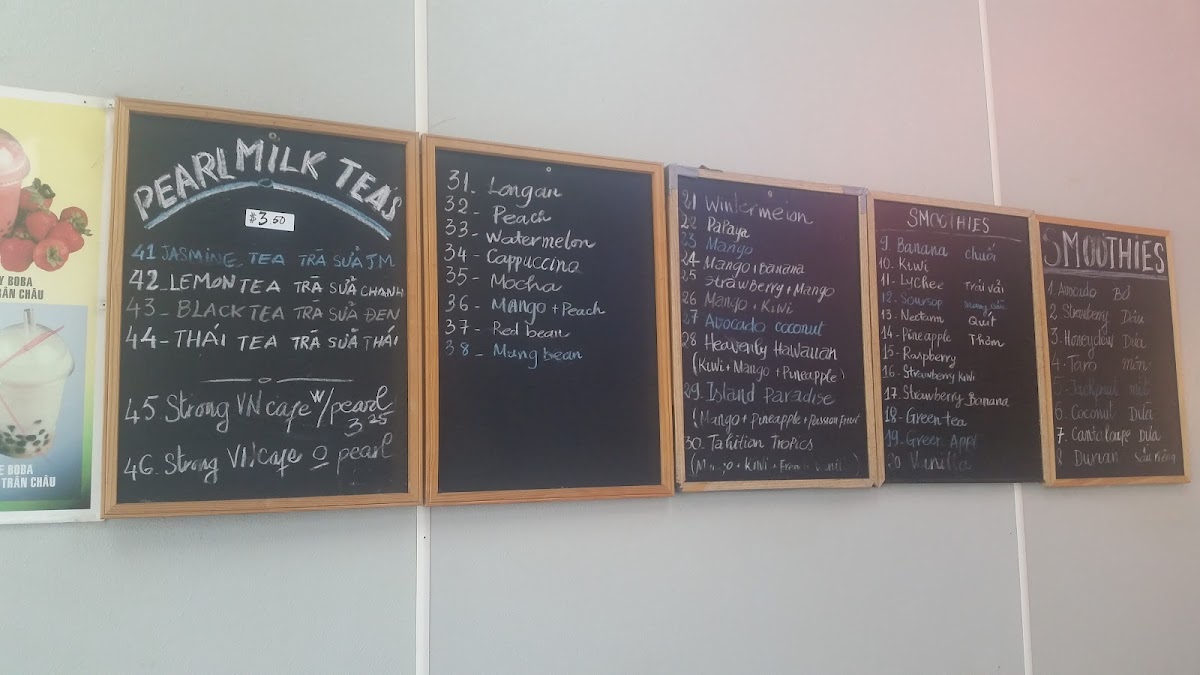 Y BOBA
TRÂN CHÂU
E BOBA
TRÂN CHÂU
PEARL MILK TEA'S
$3.50
41 JASMINE TEA TRÀ SỮA JM
42 - LEMON TEA TRÀ SỮA CHANH
43 - BLACK TEA TRÀ SỮA ĐEN
44 - THÁI TEA TRÀ SỮA THÁI
45 Strong VN cafe w/ pearl
3.25
46. Strong VN cafe o pearl
31 - Longan
32 - Peach
33 - Watermelon
34 - Cappuccino
35 - Mocha
36 - Mango + Peach
37 - Red bean
38 - Mung bean
21 Wintermelon
22 Papaya
23 Mango
24 Mango + Banana
25 Strawberry + Mango
26 Mango + Kiwi
27 Avocado coconut
28 Heavenly Hawaiian
(Kiwi + Mango + Pineapple)
29. Island Paradise
(Mango + Pineapple + Passion Fruit)
30. Tahitian Tropics
SMOOTHIES
9. Banana chuối
10. Kiwi
11. Lychee Trái vải
12. Soursop
13. Nectarin Quít
14. Pineapple Thơm
15. Raspberry
16. Strawberry Kiwi
17. Strawberry Banana
18. Green tea
19. Green Appl
20 Vanilla
SMOOTHIES
1. Avocado Bơ
2. Strawberry Dâu
3. Honeydew Dưa
4. Taro môn
5. Jackfruit mít
6. Coconut Dừa
7. Cantaloupe Dưa
8 Durian Sầu riêng